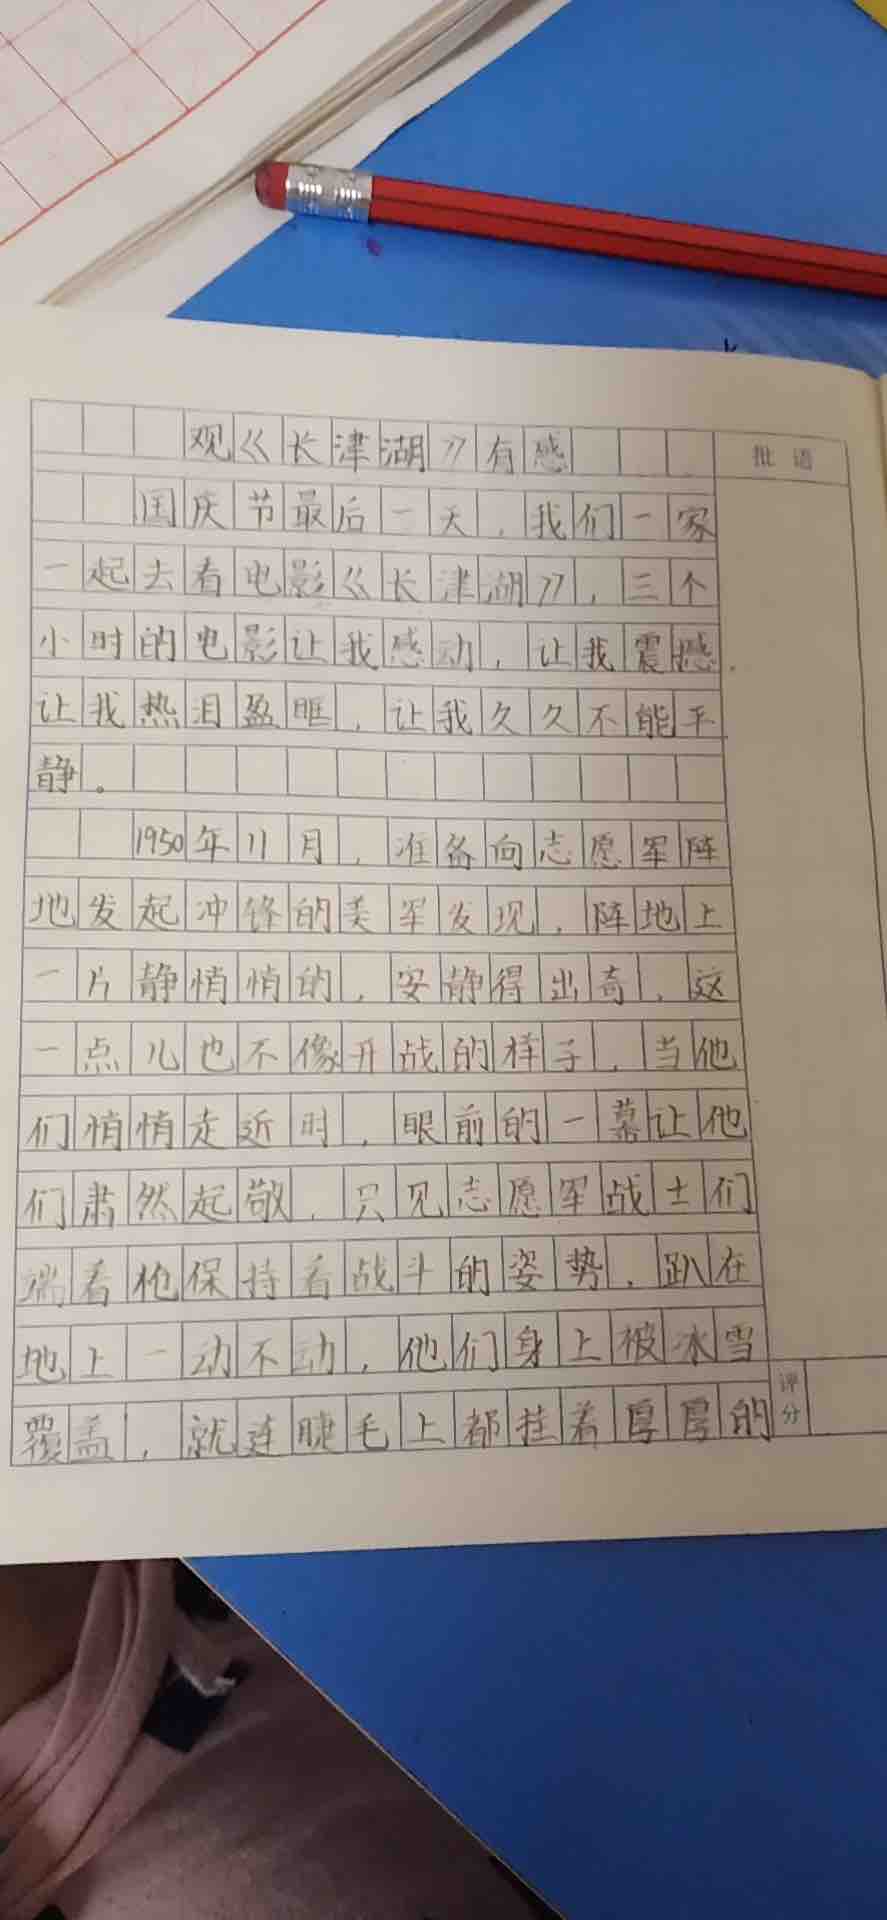 观《长津湖》有感
批语
国庆节最后一天，我们一家
一起去看电影《长津湖》，三个
小时的电影让我感动，让我震撼，
让我热泪盈眶，让我久久不能平
静。
1950年11月，准备向志愿军阵
地发起冲锋的美军发现，阵地上
一片静悄悄的，安静得出奇，这
一点儿也不像开战的样子，当他
们悄悄走近时，眼前的一幕让他
们肃然起敬，只见志愿军战士们
端着枪保持着战斗的姿势，趴在
地上一动不动，他们身上被冰雪
覆盖，就连睫毛上都挂着厚厚的
评分